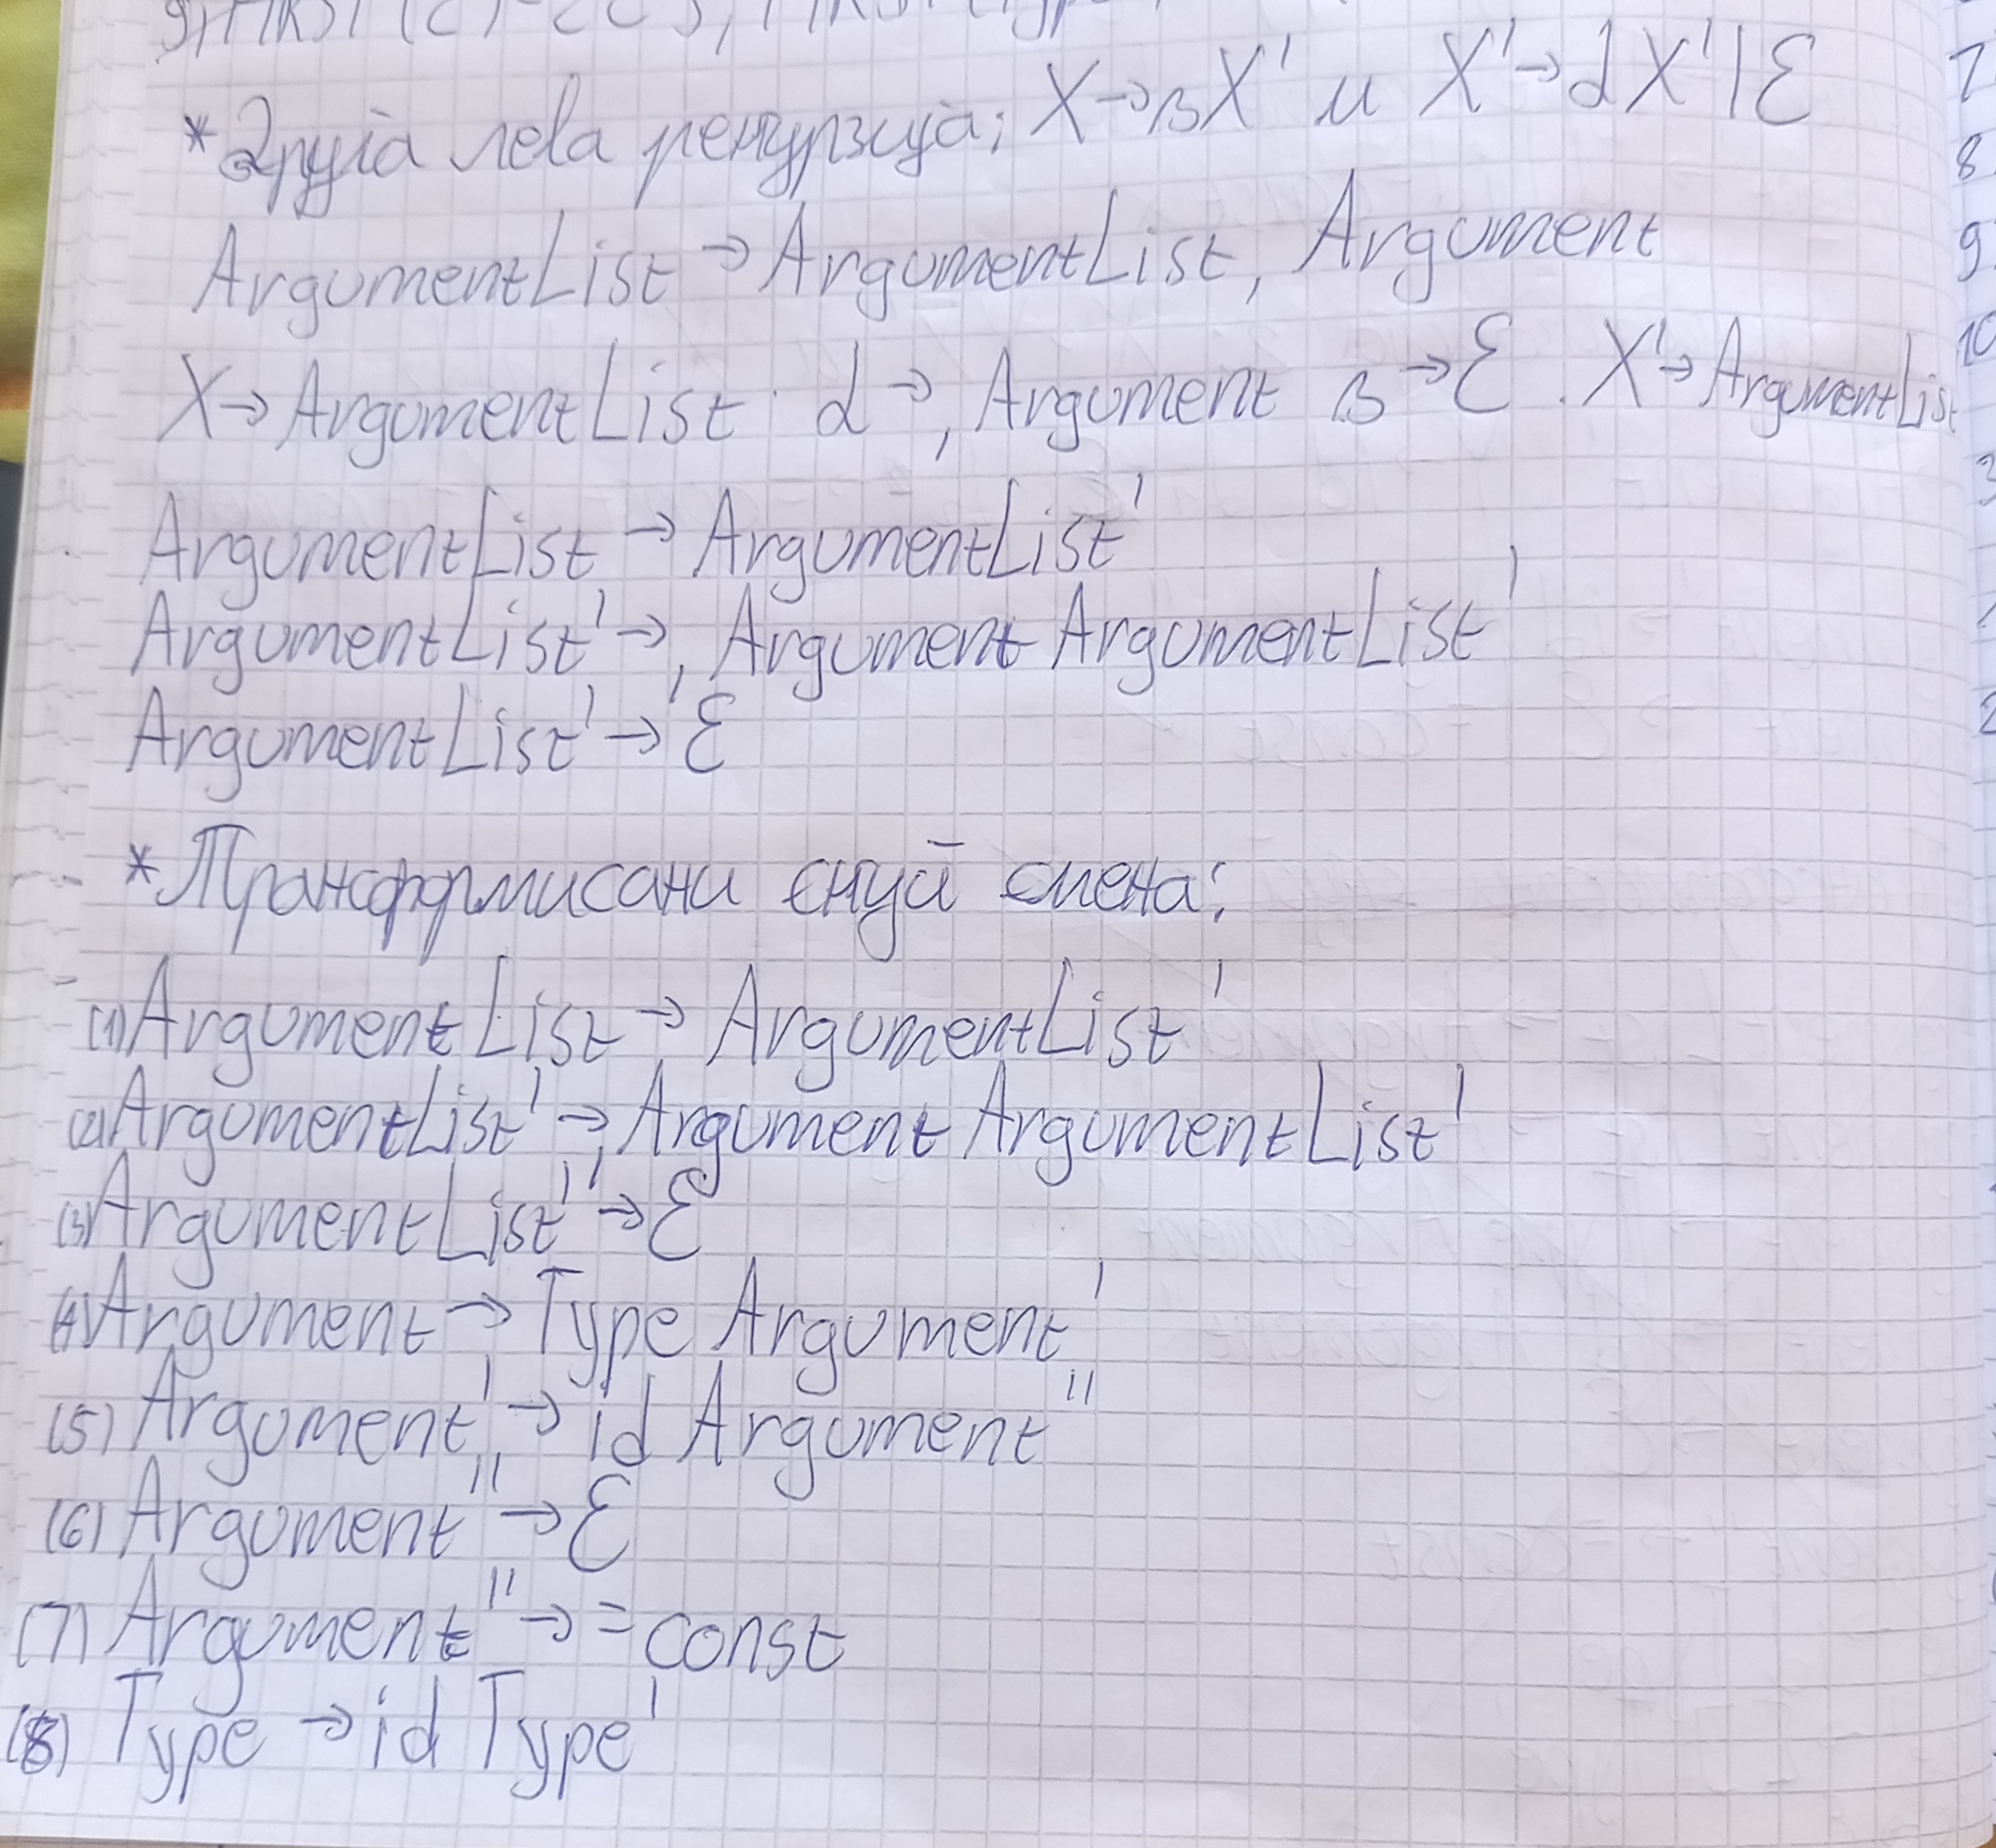 *Друга лева рекурзија: X→βX' и X'→αX'|ε
ArgumentList → ArgumentList, Argument
X→ArgumentList α→, Argument β→ε. X'→ArgumentList
ArgumentList → ArgumentList'
ArgumentList' →, Argument ArgumentList'
ArgumentList' → ε
*Трансформисани скуп смена:
(1) ArgumentList → ArgumentList'
(2) ArgumentList' →, Argument ArgumentList'
(3) ArgumentList' → ε
(4) Argument → Type Argument'
(5) Argument' → id Argument"
(6) Argument" → ε
(7) Argument" → =const
(8) Type → id Type'
7
8
9
10
3
1
2